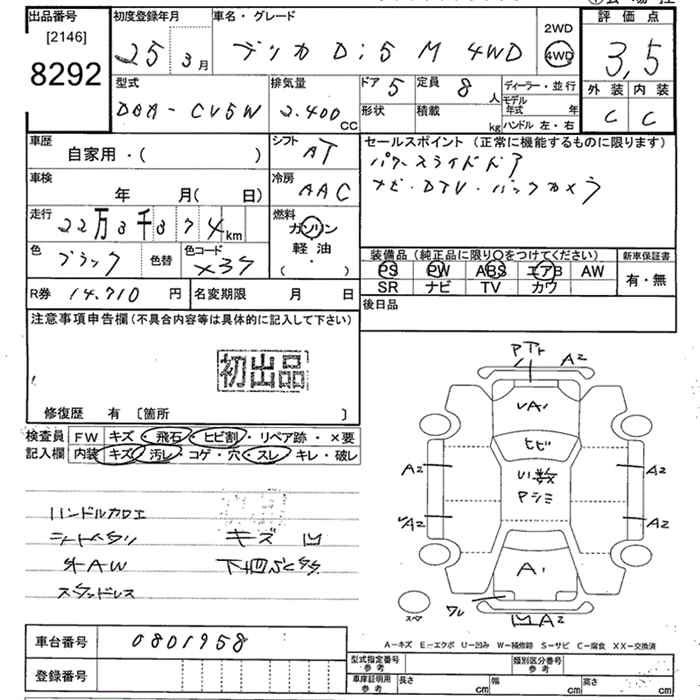 出品番号 初度登録年月 車名・グレード 評価点
[2146] 2WD
8292 25 3月 デリカ D:5 M 4WD 4WD 3,5
外装 内装
型式 排気量 ドア 5 定員 8人 ディーラー・並行 C C
DBA-CV5W 2.400cc 形状 積載 kg モデル年式 年
ハンドル 左・右
車歴 シフト セールスポイント (正常に機能するものに限ります)
自家用・( ) AT パワースライドドア
車検 冷房 ナビ・DTV・バックカメラ
年 月( 日) AAC
走行 燃料
22万3千874km ガソリン
軽油
・
( )
色 ブラック 色替 色コード X37
装備品 (純正品に限り○をつけてください) 新車保証書
PS PW ABS エアB AW 有・無
SR ナビ TV カワ
R券 14.710円 名変期限 月 日 後日品
注意事項申告欄(不具合内容等は具体的に記入して下さい)
初出品
修復歴 有 〔箇所 〕
検査員 FW キズ・飛石・ヒビ割・リペア跡・×要
記入欄 内装 キズ・汚レ・コゲ・穴・スレ・キレ・破レ
ハンドルカワエ
シートヘタリ キズ 凹
外AW 下回り
スタッドレス
A2
A1
ヒビ
小数
A2 A2
A2 A2
A1
ワレ 凹A2
スペア
車台番号 0801958
A-キズ E-エクボ U-凹み W-補修跡 S-サビ C-腐食 XX-交換済
登録番号 型式指定番号 参考 類別区分番号 参考
車庫証明用 参考 長さ cm 幅 cm 高さ cm